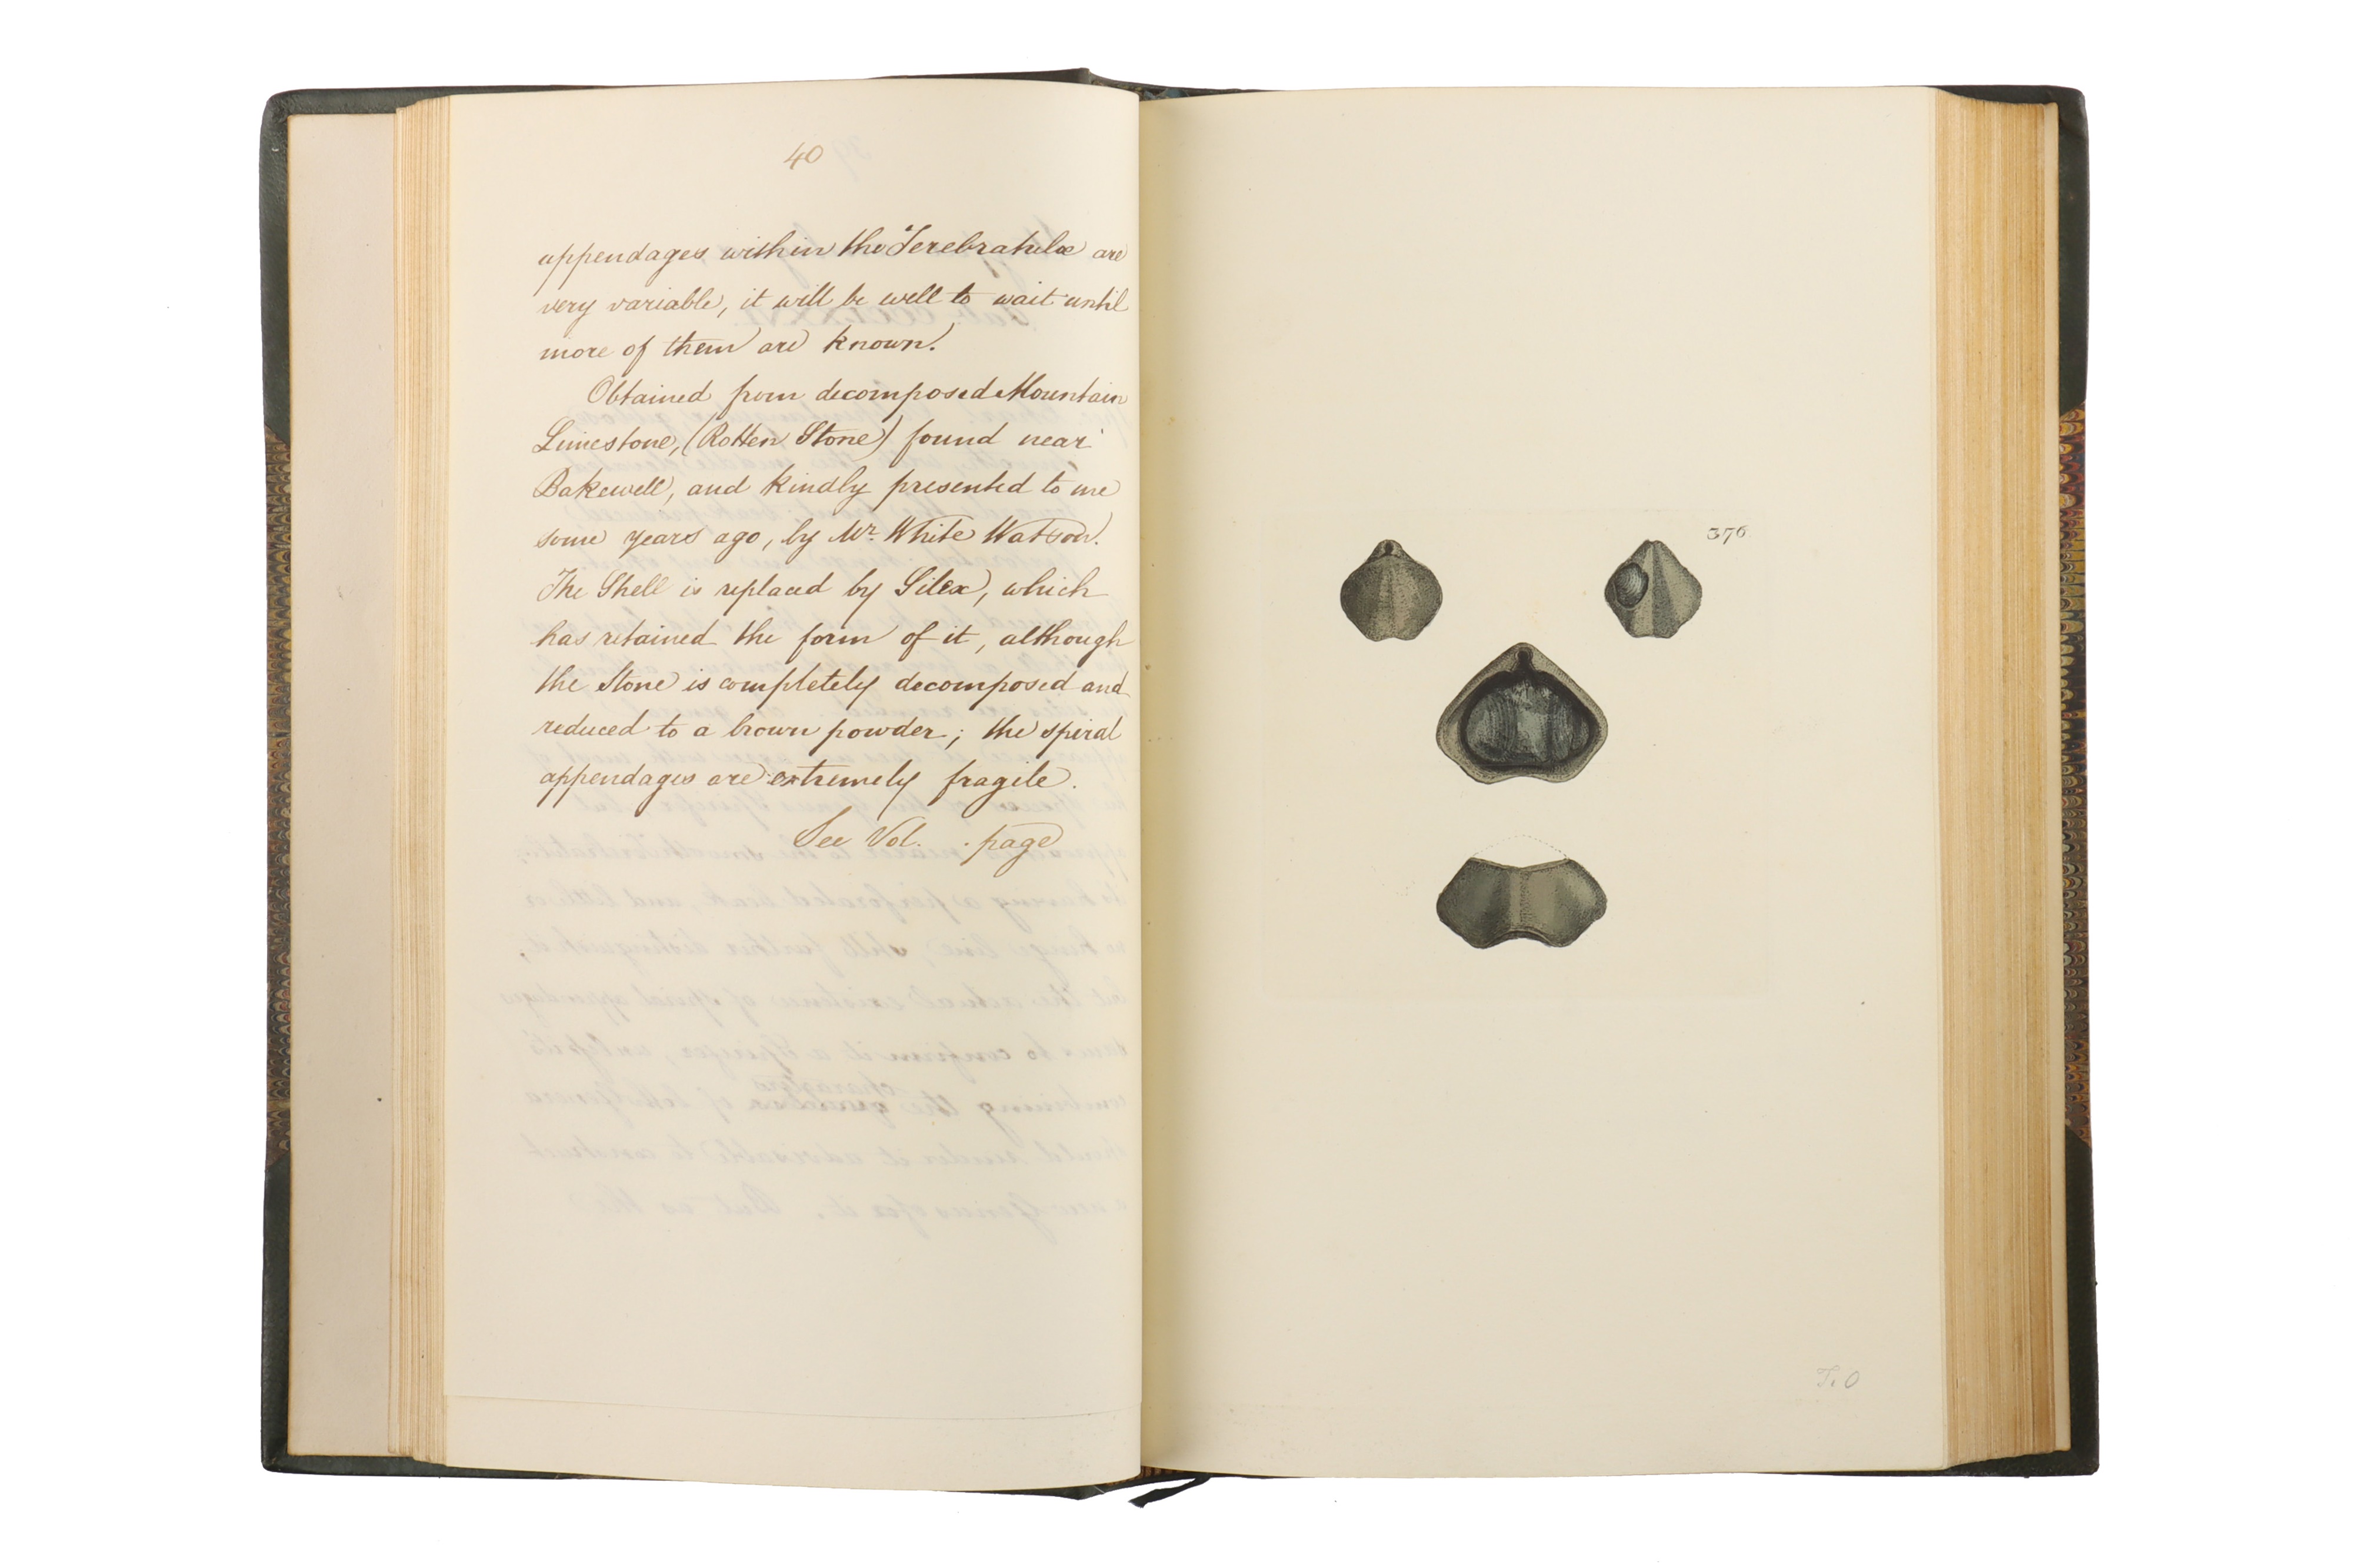 40
appendages within the Terebratulæ are
very variable, it will be well to wait until
more of them are known.
Obtained from decomposed Mountain
Limestone, (Rotten Stone) found near
Bakewell, and kindly presented to me
some years ago, by Mr. White Watson.
The Shell is replaced by Silex, which
has retained the form of it, although
the Stone is completely decomposed and
reduced to a brown powder; the spiral
appendages are extremely fragile.
See Vol. . page
376
T.O